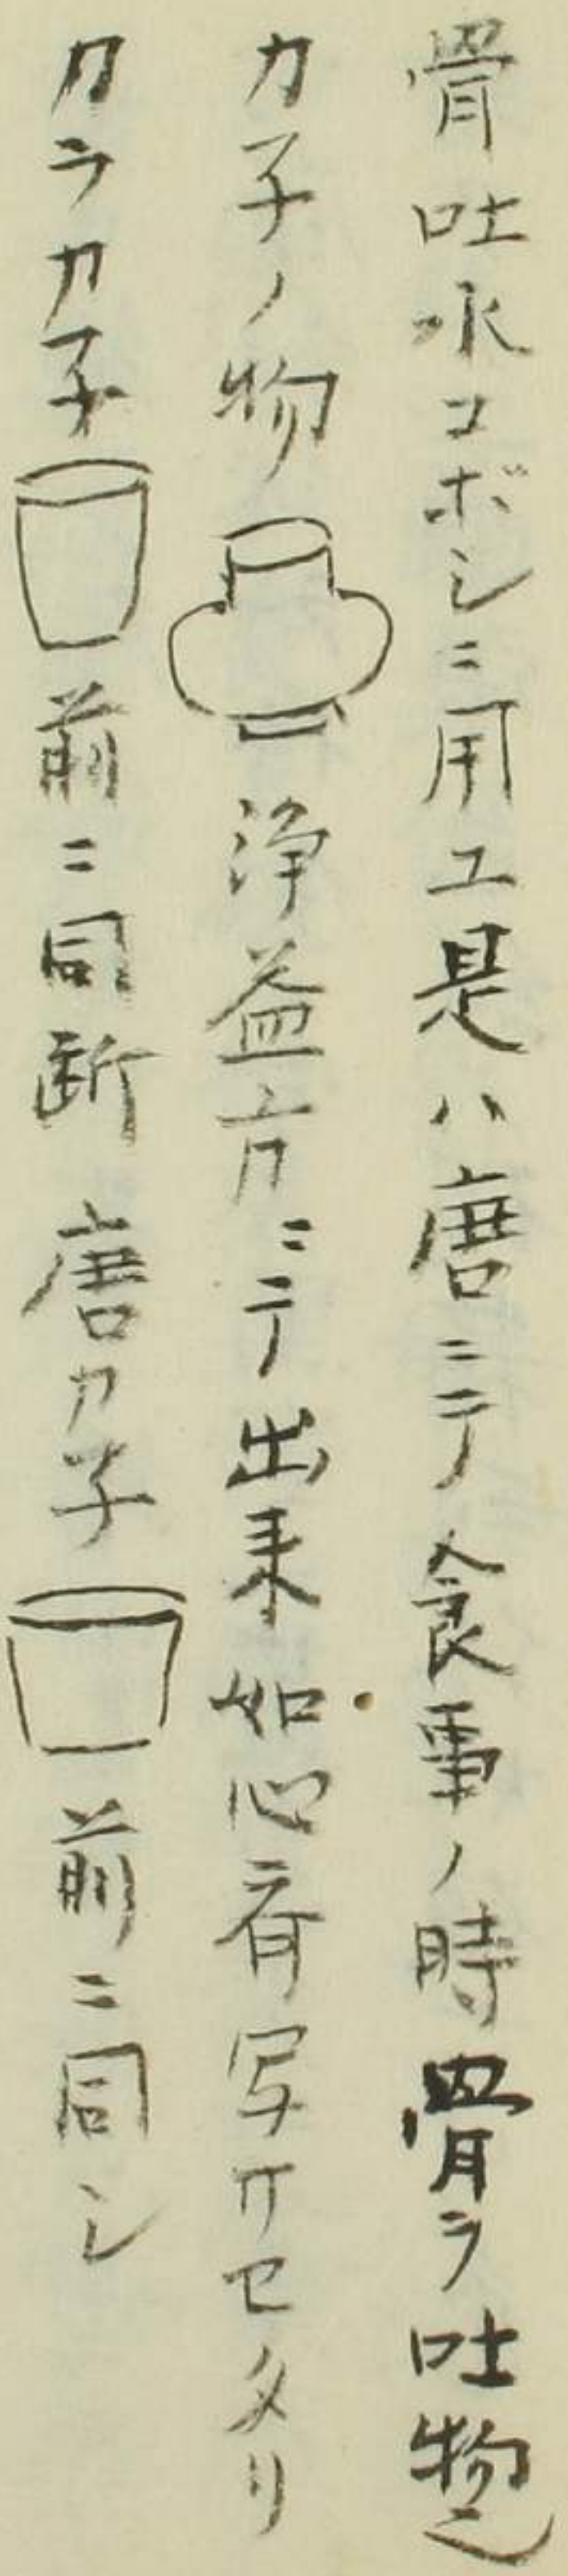 骨吐水コボシニ用エ是ハ唐ニテ食事ノ時骨ヲ吐物也
カ子ノ物 浄益方ニテ出来如心斎写サセタリ
カラカ子 前ニ同断 唐カ子 前ニ同シ